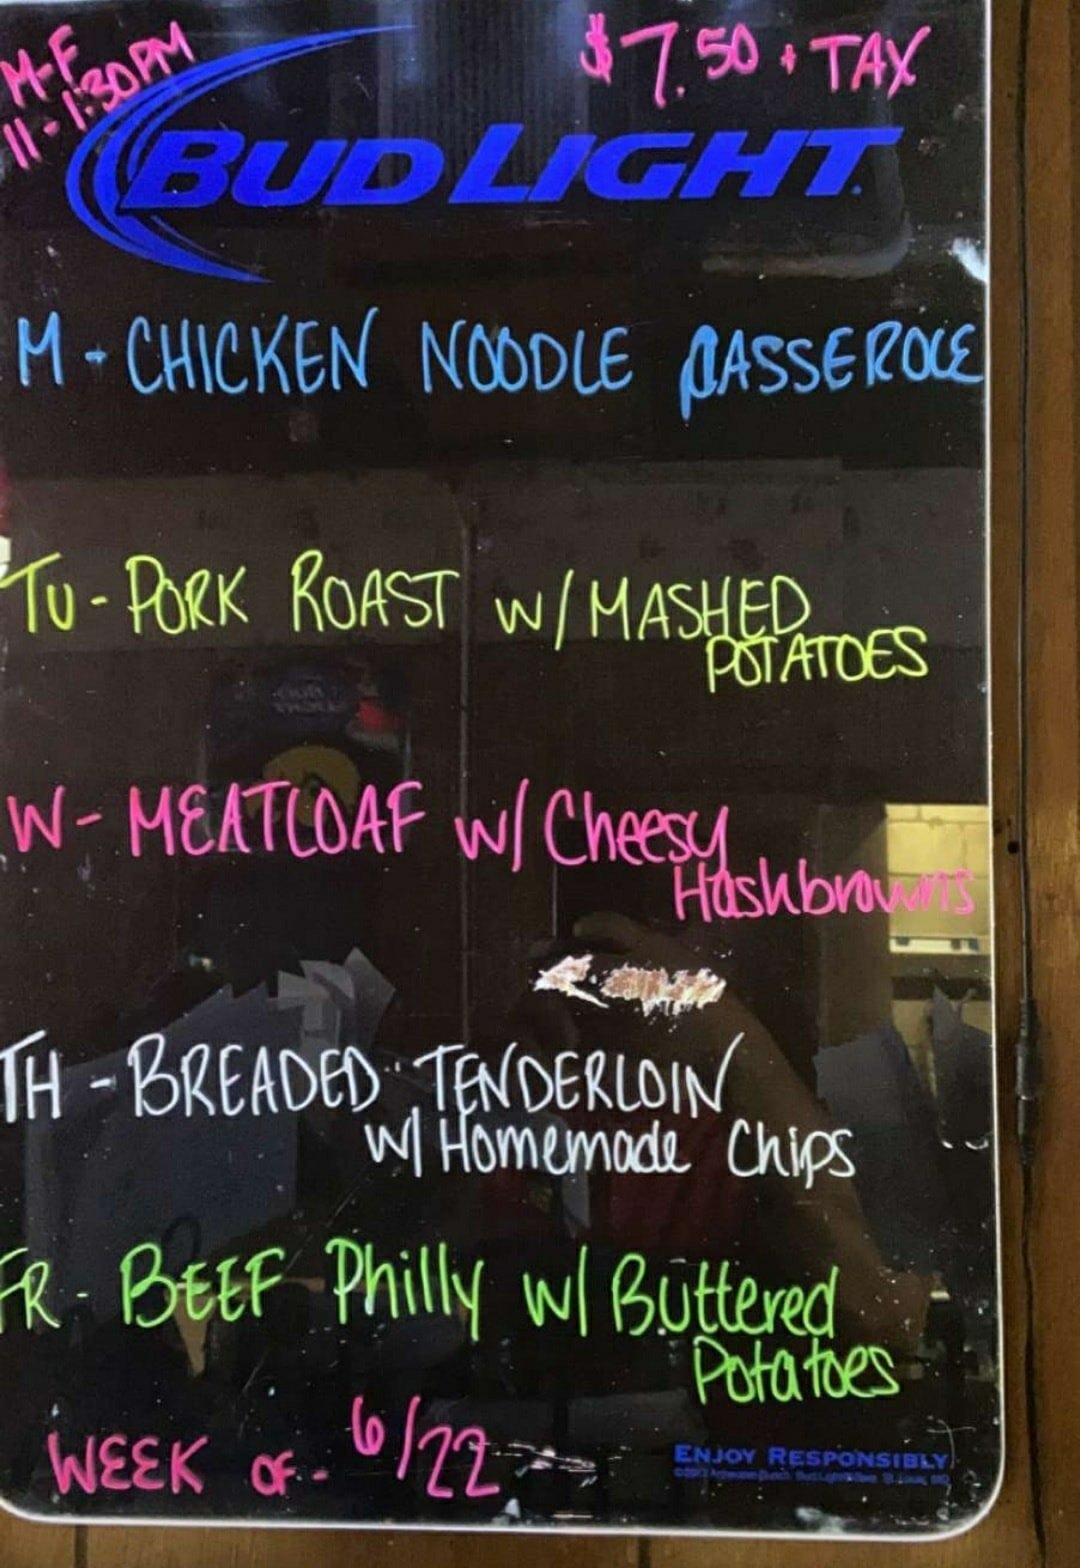 M-F
11-1:30PM
$7.50 + TAX
BUD LIGHT
M - CHICKEN NOODLE CASSEROLE
TU - PORK ROAST W/ MASHED
POTATOES
W - MEATLOAF W/ Cheesy
Hashbrowns
TH - BREADED TENDERLOIN
W/ Homemade Chips
FR - BEEF Philly W/ Buttered
Potatoes
WEEK OF - 6/22
ENJOY RESPONSIBLY